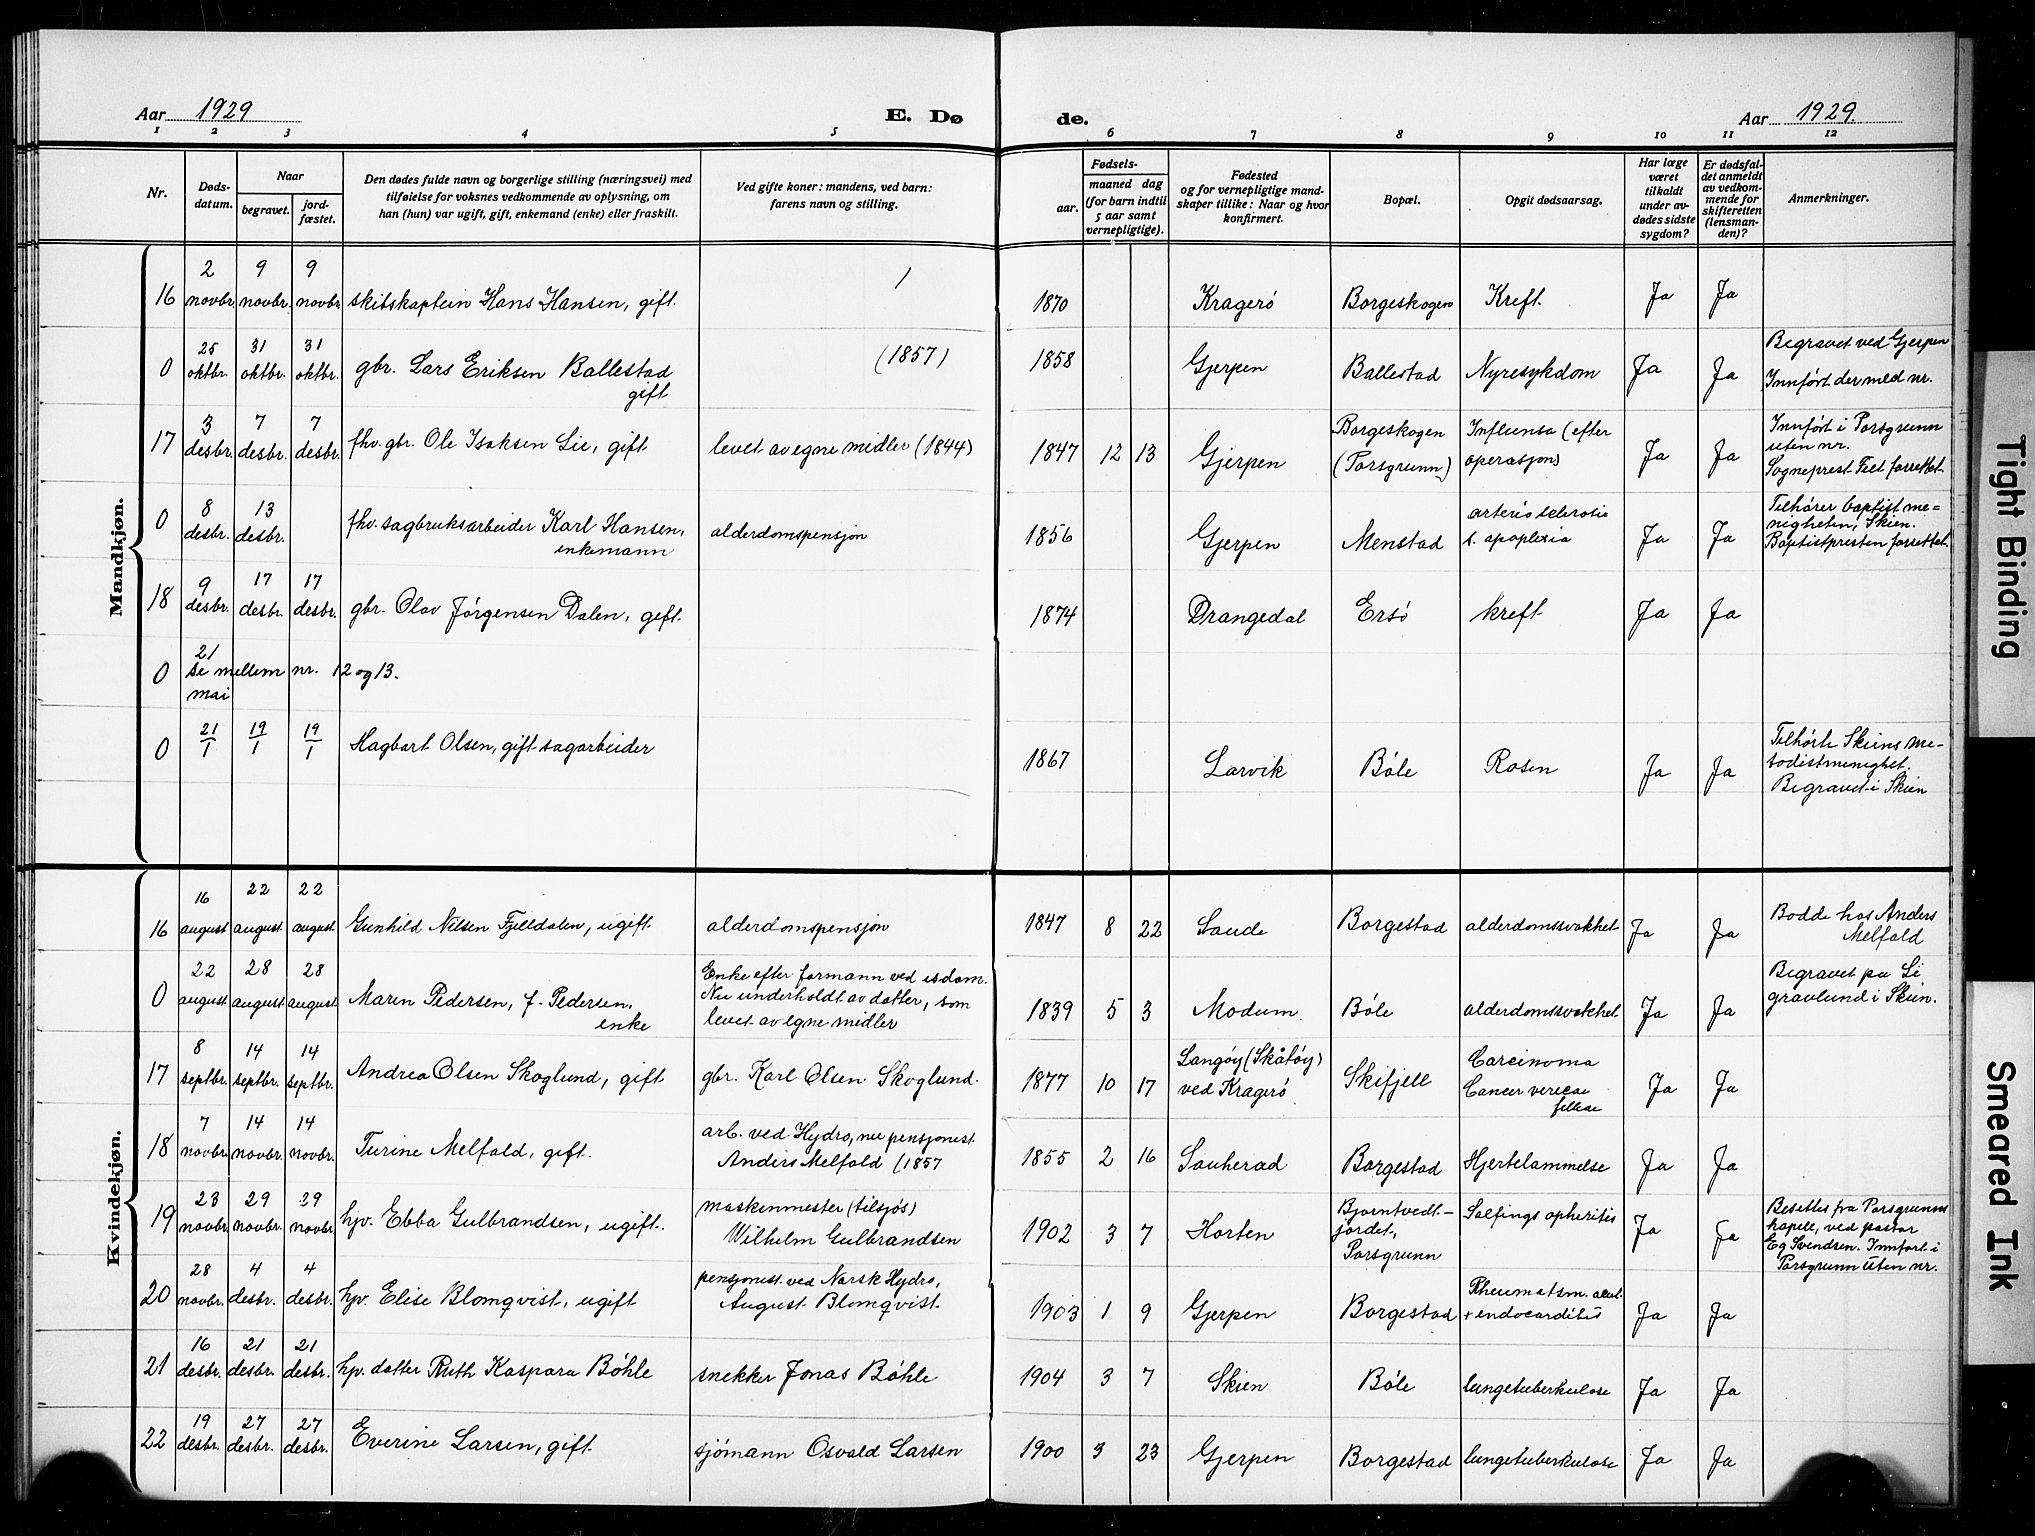 Aar 1929 E. Dø de. Aar 1929.
1 2 3 4 5 6 7 8 9 10 11 12
Nr.
Døds-
datum.
Naar
begravet.
jord-
fæstet.
Den dødes fulde navn og borgerlige stilling (næringsvei) med
tilføielse for voksnes vedkommende av oplysning, om
han (hun) var ugift, gift, enkemand (enke) eller fraskilt.
Ved gifte koner: mandens, ved barn:
farens navn og stilling.
Fødsels-
aar.
maaned dag
(for barn indtil
5 aar samt
vernepligtige).
Fødested
og for vernepligtige mand-
skaper tillike: Naar og hvor
konfirmert.
Bopæl.
Opgit dødsaarsag.
Har læge
været
tilkaldt
under av-
dødes sidste
sygdom?
Er dødsfal-
det anmeldt
av vedkom-
mende for
skifteretten
(lensman-
den)?
Anmerkninger.
Mandkjøn.
16 2 novbr. 9 novbr. 9 novbr. skibskaptein Hans Hansen, gift. 1870 Kragerø Borgeskogen Kreft. Ja Ja
0 25 oktbr. 31 oktbr. 31 oktbr. gbr. Lars Eriksen Ballestad
gift
(1857) 1858 Gjerpen Ballestad Nyresykdom Ja Ja
Begravet ved Gjerpen
Innført der med nr.
17 3 desbr. 7 desbr. 7 desbr. fhv. gbr. Ole Isaksen Lie, gift levet av egne midler (1844) 1847 12 13 Gjerpen
Borgeskogen
(Porsgrunn)
Influensa (efter
operasjon)
Ja Ja
Innført i Porsgrunn
uten nr.
Sogneprest Feet forrettet.
0 8 desbr. 13 desbr. fhv. sagbruksarbeider Karl Hansen,
enkemann
alderdomspensjon 1856 Gjerpen Menstad
arterio sclerosis
s. apoplexia
Ja Ja
Tilhører baptistme-
nigheten, Skien.
Baptistpresten forrettet.
18 9 desbr. 17 desbr. 17 desbr. gbr. Olav Jørgensen Dalen, gift. 1874 Drangedal Ersø kreft Ja Ja
0 21
se mellem nr. 12 og 13.
mai
0 21/1 19/1 19/1 Hagbart Olsen, gift sagarbeider 1867 Larvik Bøle Rosen Ja Ja
Tilhørte Skiens me-
todistmenighet.
Begravet i Skien
Kvindekjøn.
16 16 august 22 august 22 august Gunhild Nilsen Fjelldalen, ugift. alderdomspensjon 1847 8 22 Saude Borgestad alderdomssvakhet Ja Ja
Bodde hos Anders
Melfald
0 22 august 28 august 28 august Maren Pedersen, f. Pedersen,
enke
Enke efter formann ved isdam.
Nu underholdt av datter, som
levet av egne midler
1839 5 3 Modum. Bøle alderdomssvakhet Ja Ja
Begravet på Li
gravlund i Skien.
17 8 septbr. 14 septbr. 14 septbr. Andrea Olsen Skoglund, gift gbr. Karl Olsen Skoglund. 1877 10 17
Langøy (Skåtøy)
ved Kragerø
Skifjell
Carcinoma
Cancer vericae
felleae
Ja Ja
18 7 novbr. 14 novbr. 14 novbr. Turine Melfald, gift.
arb. ved Hydro, nu pensjonist.
Anders Melfald (1857
1855 2 16 Sauherad Borgestad Hjertelammelse Ja Ja
19 23 novbr. 29 novbr. 29 novbr. hjv. Ebba Gulbrandsen, ugift.
maskinmester (tilsjøs)
Wilhelm Gulbrandsen
1902 3 7 Horten
Bjørntvedt-
jordet,
Porsgrunn
Salfings opheritis
Ja Ja
Besettes fra Porsgrunns
kapell, ved pastor
Eg Svendsen. Innført i
Porsgrunn uten nr.
20 28 novbr. 4 desbr. 4 desbr. hjv. Elise Blomqvist, ugift
pensjonist ved Norsk Hydro,
August Blomqvist.
1903 1 9 Gjerpen Borgestad
Rheumatsm. akut
+ endocarditis
Ja Ja
21 16 desbr. 21 desbr. 21 desbr. hjv. datter Ruth Kaspara Bøhle snekker Jonas Bøhle 1904 3 7 Skien Bøle lungetuberkulose Ja Ja
22 19 desbr. 27 desbr. 27 desbr. Everine Larsen, gift. sjømann Osvald Larsen 1900 3 23 Gjerpen Borgestad lungetuberkulose Ja Ja
Tight Binding
Smeared Ink